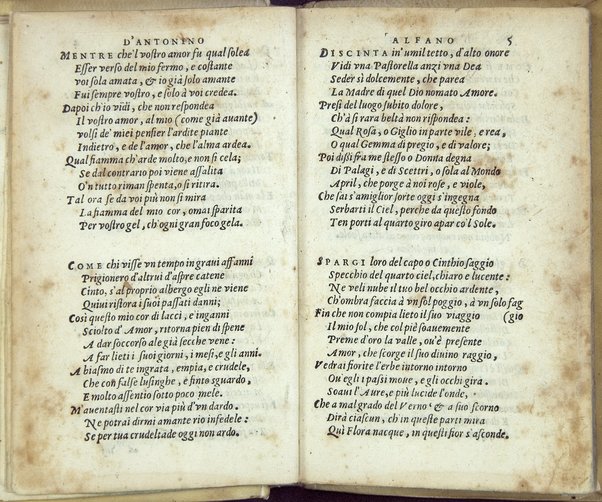 D'ANTONINO
MENTRE che'l vostro amor fu qual solea
Esser verso del mio fermo, e costante
voi sola amata, & io già solo amante
Fui sempre vostro, e solo à voi credea.
Dapoi ch'io vidi, che non respondea
Il vostro amor, al mio (come già auante)
volsi de' miei pensier l'ardite piante
Indietro, e de l'amor, che l'alma ardea.
Qual fiamma ch'arde molto, e non si cela;
Se dal contrario poi viene assalita
O'n tutto riman spenta, o si ritira.
Tal ora se da voi più non si mira
La fiamma del mio cor, omai sparita
Per vostro gel, ch'ogni gran foco gela.
COME chi visse vn tempo in graui affanni
Prigionero d'altrui d'aspre catene
Cinto, s'al proprio albergo egli ne viene
Quiui ristora i suoi passati danni;
Così questo mio cor di lacci, e inganni
Sciolto d'Amor, ritorna pien di spene
A dar soccorso ale già secche vene:
A far lieti i suoi giorni, i mesi, e gli anni.
A biasmo di te ingrata, empia, e crudele,
Che con false lusinghe, e finto sguardo,
E molto assentio sotto poco mele.
M'auentasti nel cor via più d'vn dardo.
Ne potrai dirmi amante rio infedele:
Se per tua crudeltade oggi non ardo.
ALFANO 5
DISCINTA in'umil tetto, d'alto onore
Vidi vna Pastorella anzi vna Dea
Seder sì dolcemente, che parea
La Madre di quel Dio nomato Amore.
Presi del luogo subito dolore,
Ch'à sì rara beltà non rispondea:
Qual Rosa, o Giglio in parte vile, e rea,
O qual Gemma di pregio, e di valore;
Poi dissi fra me stesso o Donna degna
Di Palagi, e di Scettri, o sola al Mondo
April, che porge à noi rose, e viole,
Che sai s'amiglior sorte oggi s'ingegna
Serbarti il Ciel, perche da questo fondo
Ten porti al quarto giro apar co'l Sole.
SPARGI loro del capo o Cinthio saggio
Specchio del quarto ciel, chiaro e lucente:
Ne veli nube il tuo bel occhio ardente,
Ch'ombra faccia à vn sol poggio, à vn solo fag
Fin che non compia lieto il suo viaggio (gio
Il mio sol, che col piè soauemente
Preme d'oro la valle, ou'è presente
Amor, che scorge il suo diuino raggio,
Vedrai fiorite l'erbe intorno intorno
Ou egli i passi moue, e gli occhi gira.
Soaui l'Aure, e più lucide l'onde,
Che a mal grado del Verno' & a suo scorno
Dirà ciascun, ch'in queste parti mira
Quì Flora nacque, in questi fior s'asconde.